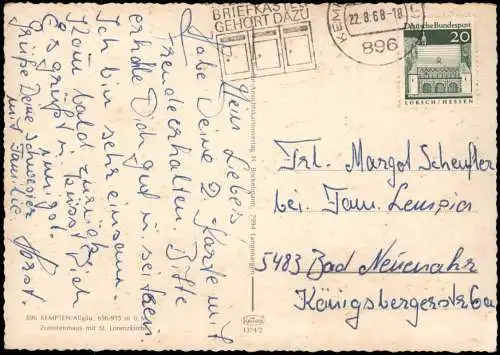 BRIEFKASTEN
GEHÖRT DAZU
22.8.68-18
896
Deutsche Bundespost
20
LORSCH/HESSEN
Mein Liebes!
Habe Deine 2. Karte mit
Freude erhalten. Bitte
erhole Dich gut u. sei
Ich bin sehr einsam.
Komm bald zurück
Es grüßt u. küsst Dich
Grüße Deine Schwester
mit Familie
Horst.
Frl. Margot Scheufler
bei Fam. Lempia
5483 Bad Neuenahr
Königsbergerstr. 6a
896 KEMPTEN/Allgäu, 656-915 m ü.
Zumsteinhaus mit St. Lorenzkirche
1374/2